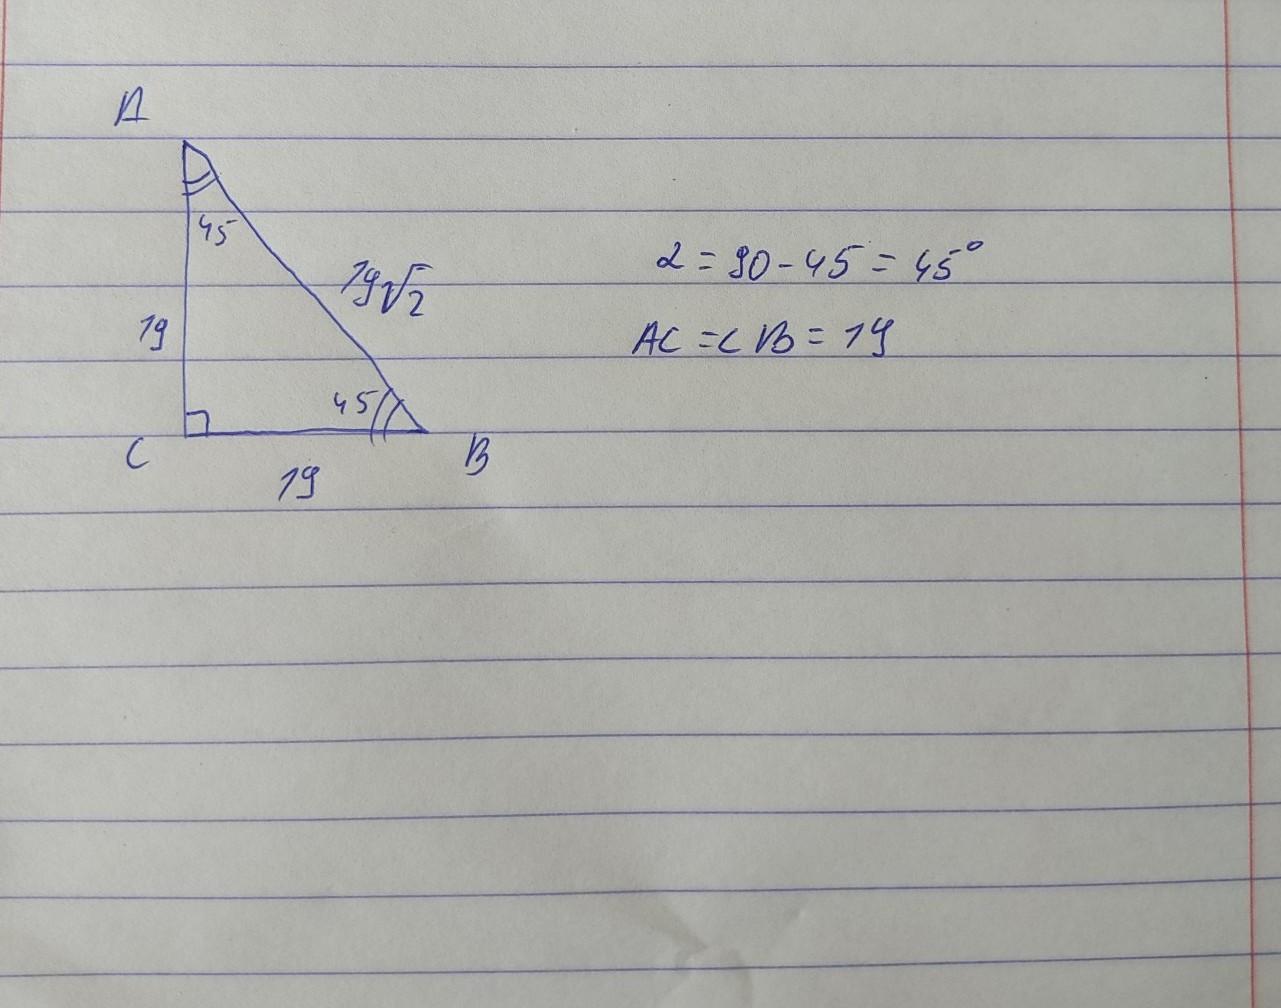 A
45
19√2
α = 90 - 45 = 45°
19
AC = CB = 19
45
C
B
19